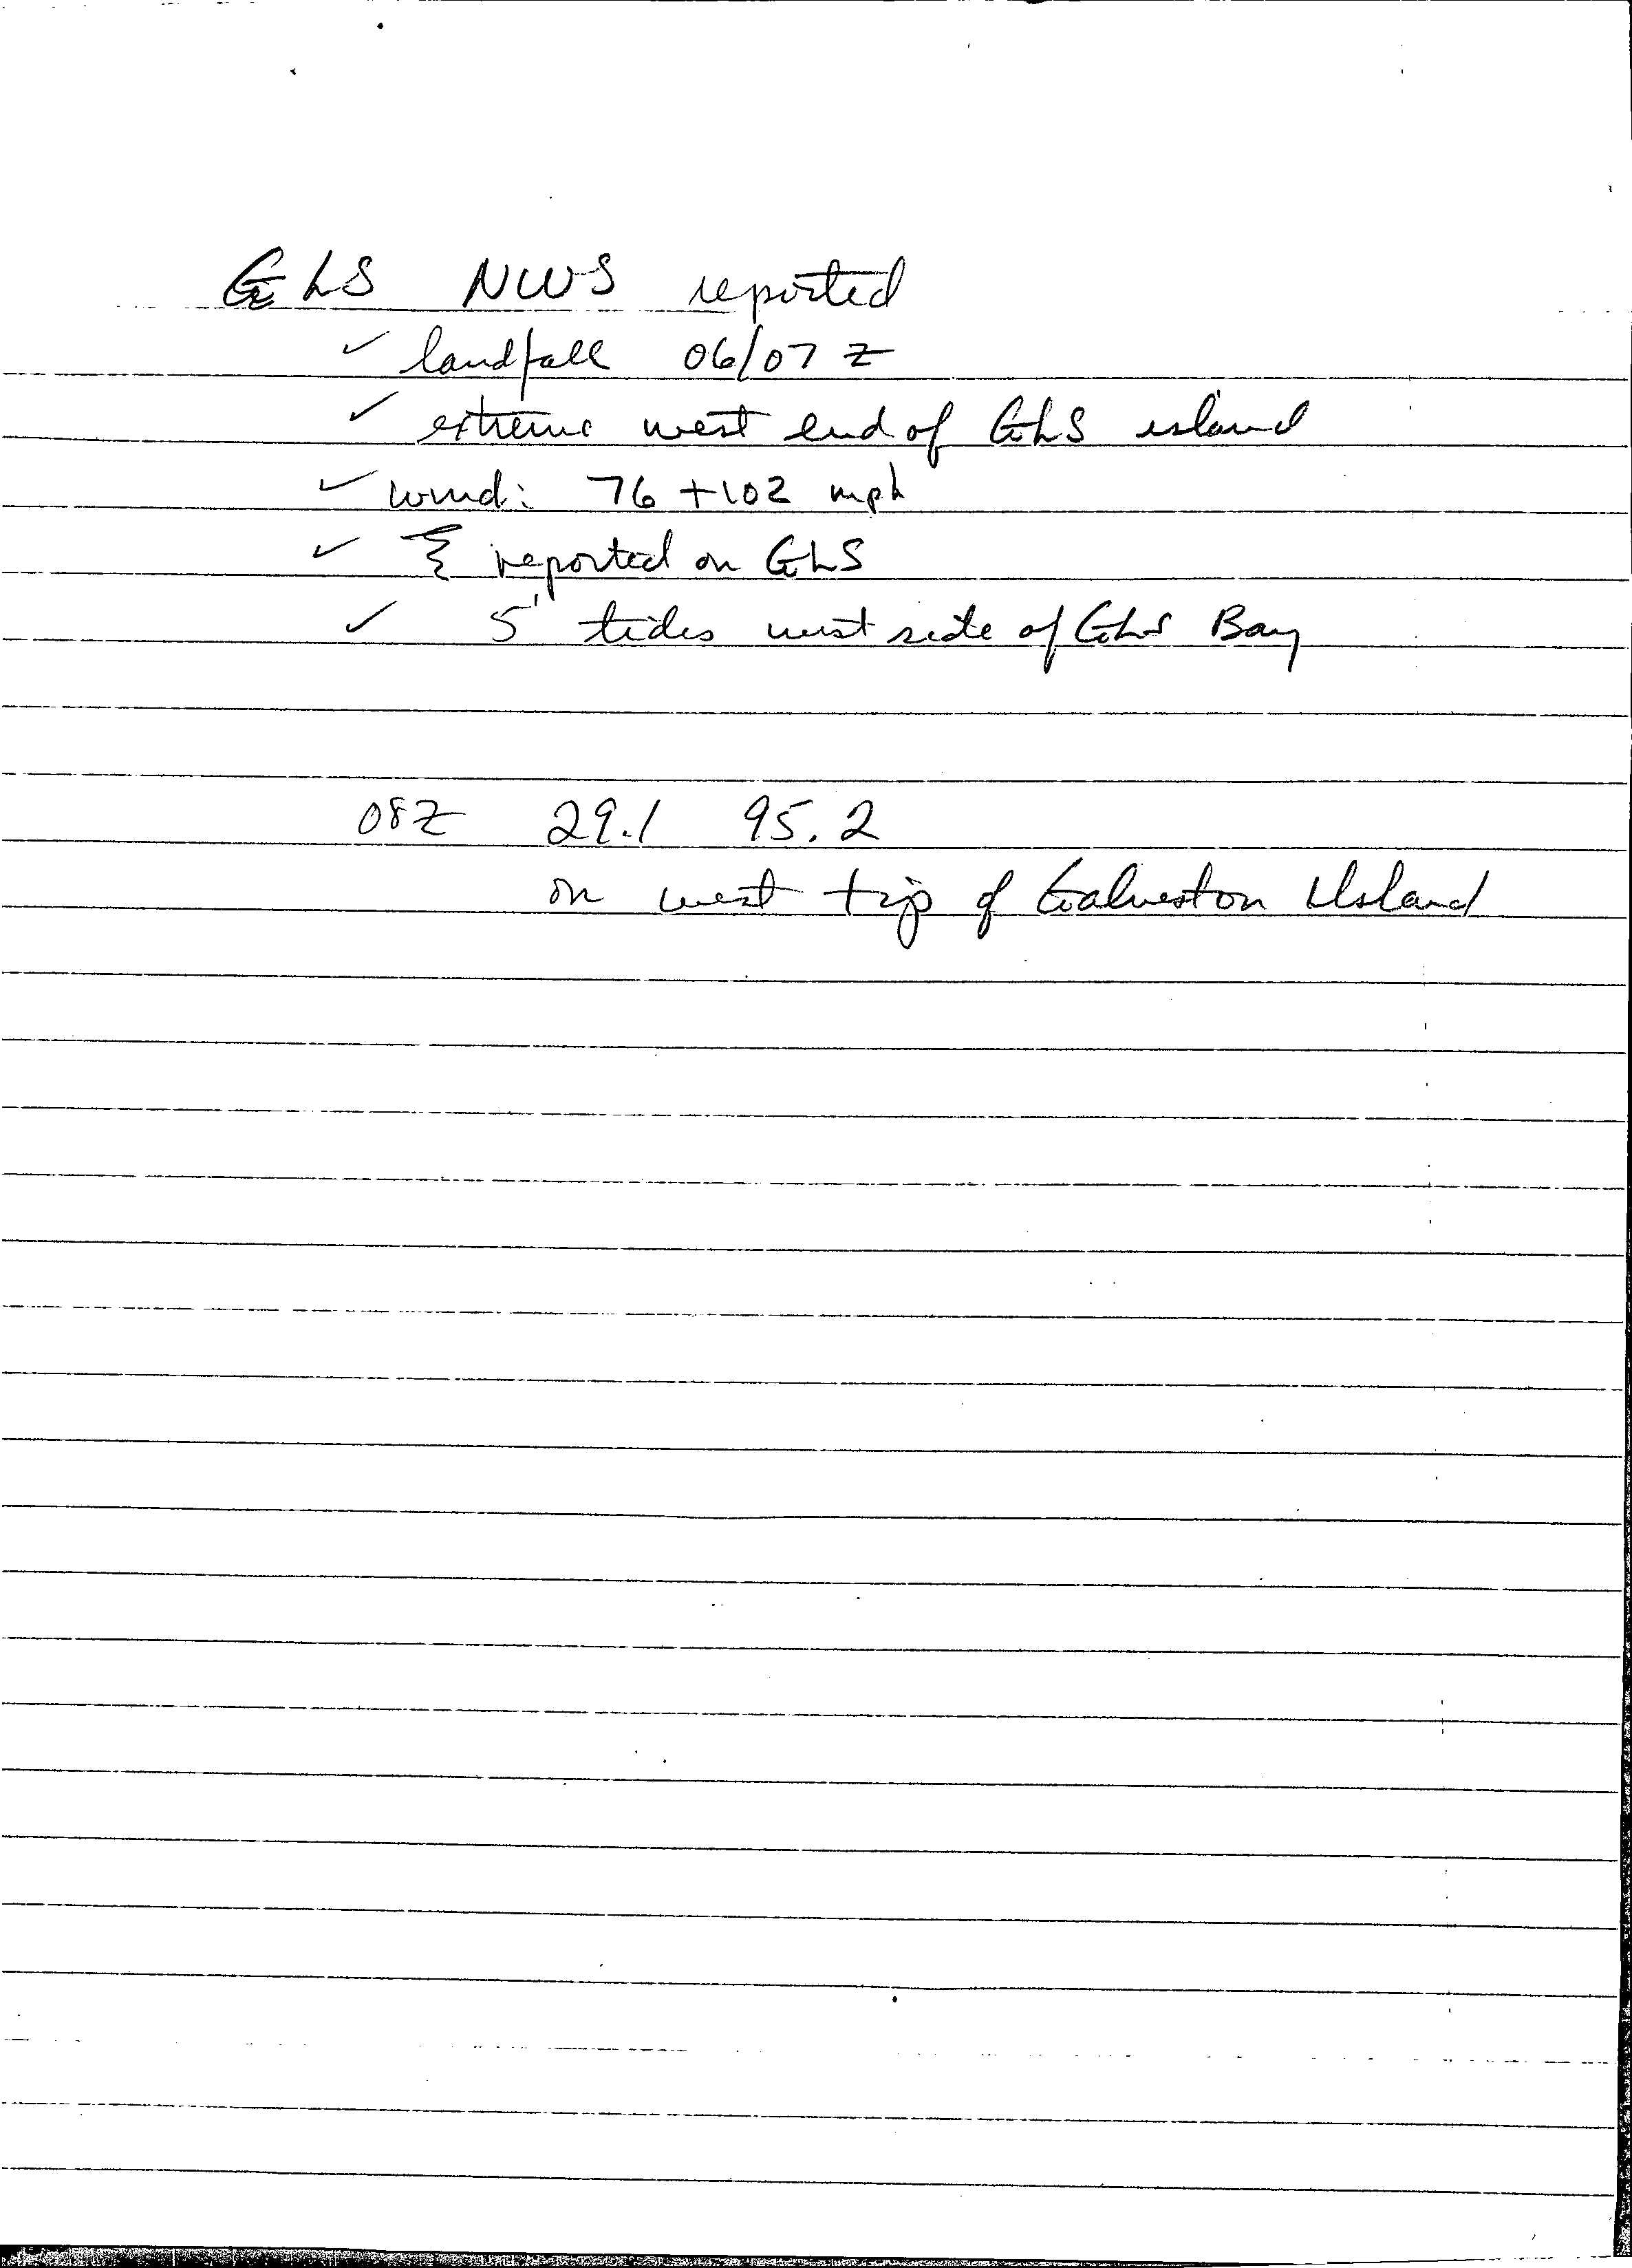 GLS NWS reported
✓ landfall 06/07 Z
✓ extreme west end of GLS island
✓ wind: 76 + 102 mph
✓ reported on GLS
✓ 5' tides west side of GLS Bay
08Z 29.1 95.2
on west tip of Galveston Island